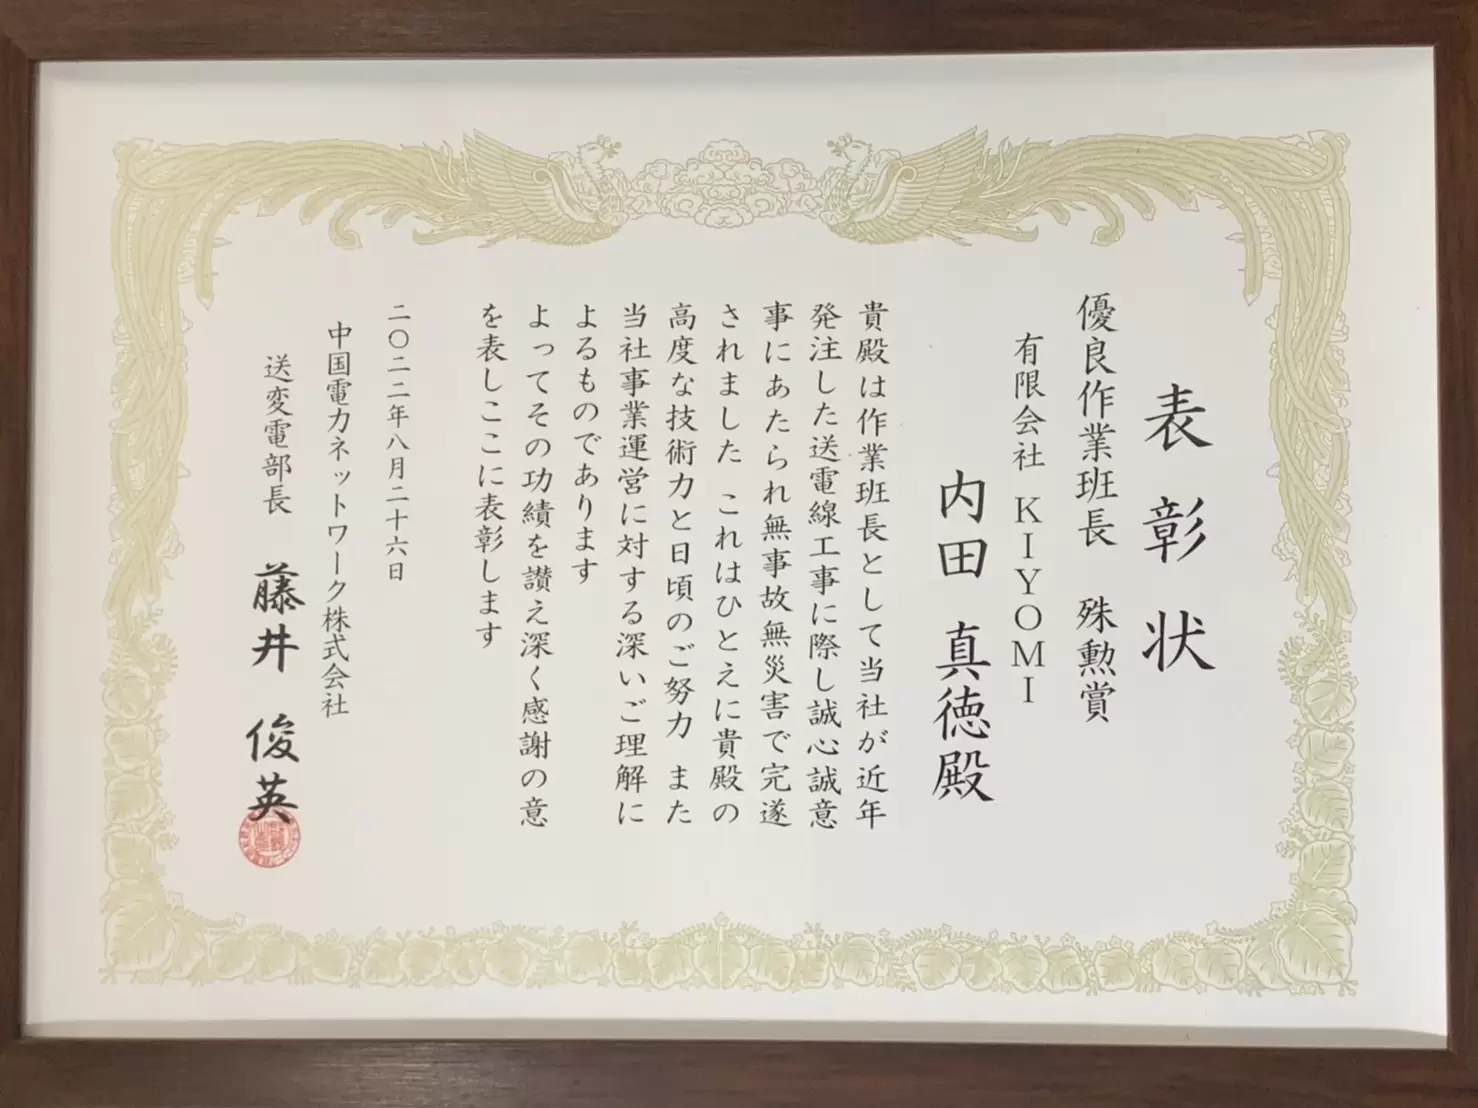 表彰状
優良作業班長　殊勲賞
有限会社 KIYOMI
内田　真徳殿
貴殿は作業班長として当社が近年
発注した送電線工事に際し誠心誠意
事にあたられ無事故無災害で完遂
されました　これはひとえに貴殿の
高度な技術力と日頃のご努力　また
当社事業運営に対する深いご理解に
よるものであります
よってその功績を讃え深く感謝の意
を表しここに表彰します
二〇二二年八月二十六日
中国電力ネットワーク株式会社
送変電部長　藤井　俊英